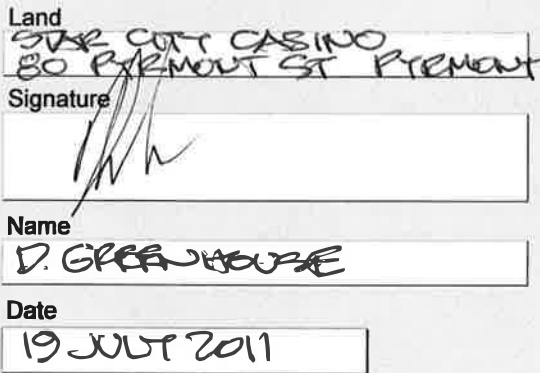 Land
STAR CITY CASINO
80 PYRMONT ST PYRMONT
Signature
Name
D. GREENHOUSE
Date
19 JULY 2011